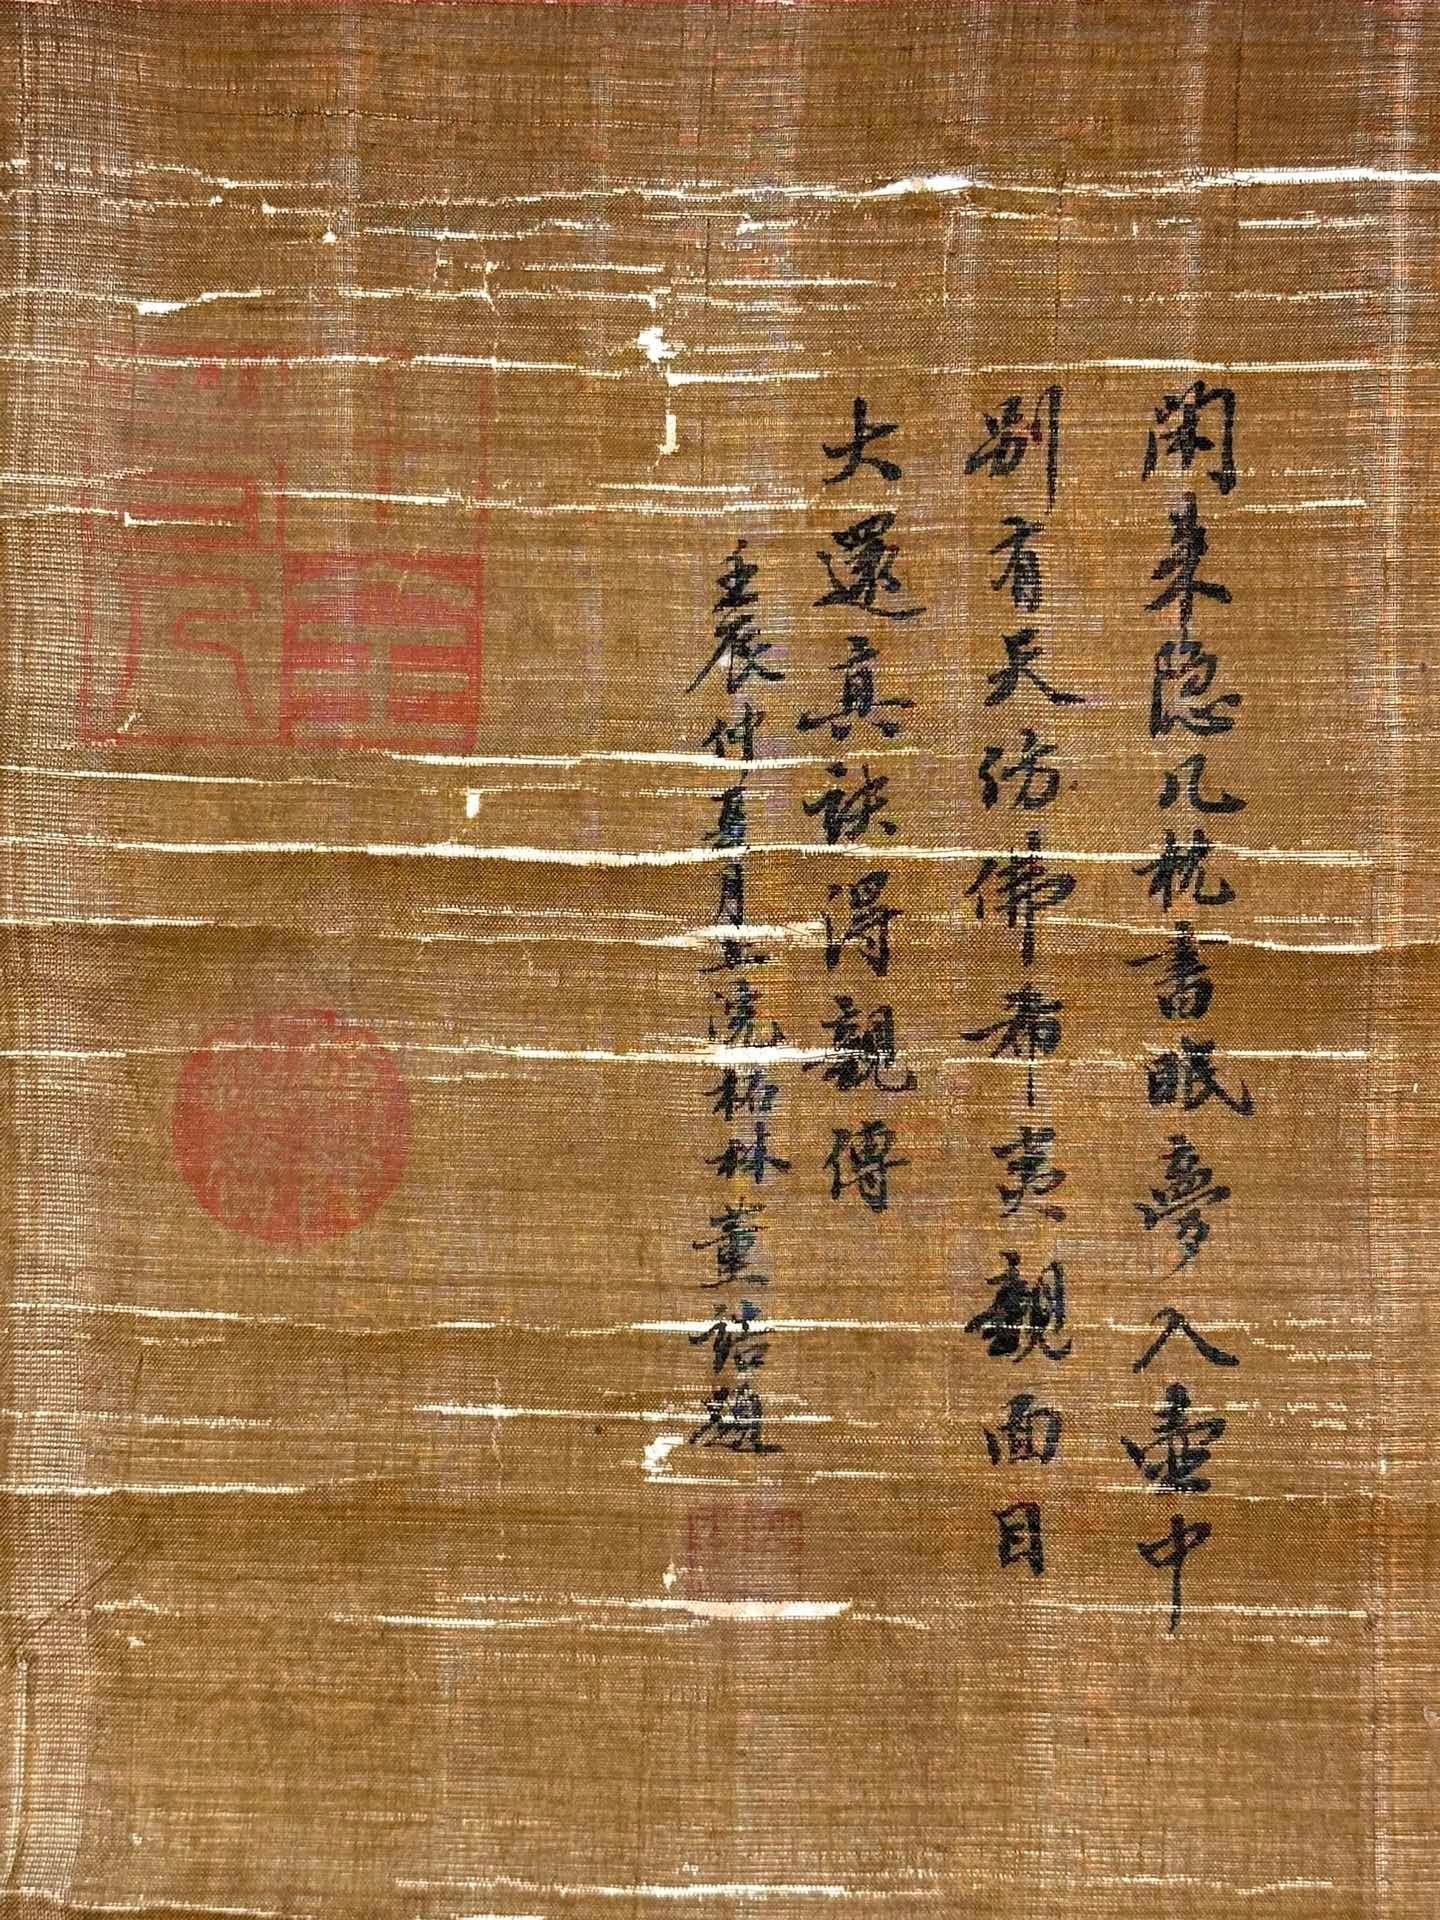 閑来隐几枕書眠夢入壺中
別有天彷彿希夷親面目
大還真訣得親傳
壬辰仲夏月上浣柘林董誥題